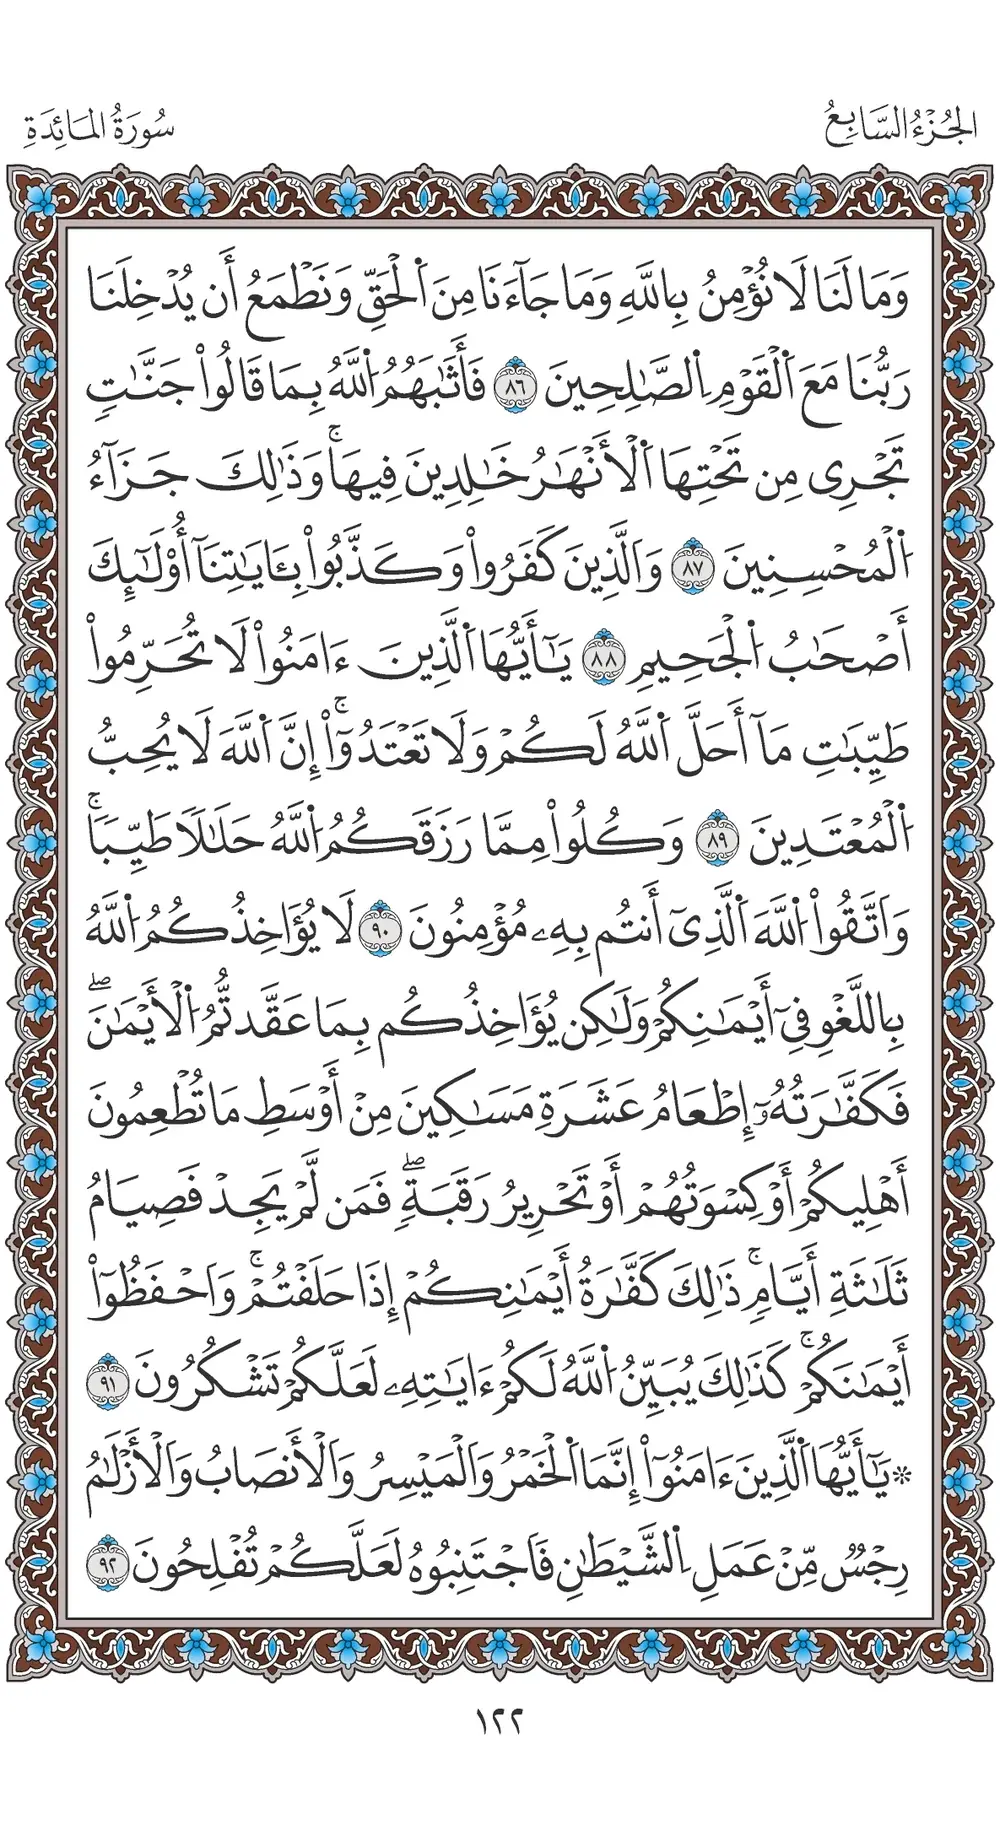 الجُزْءُ السَّابِعُ
سُورَةُ المَائِدَةِ
وَمَا لَنَا لَا نُؤْمِنُ بِاللَّهِ وَمَا جَآءَنَا مِنَ اَ۬لْحَقِّ وَنَطْمَعُ أَن يُدْخِلَنَا
رَبُّنَا مَعَ اَ۬لْقَوْمِ اِ۬لصَّٰلِحِينَ ٨٦ فَأَثَٰبَهُمُ اُ۬للَّهُ بِمَا قَالُواْ جَنَّٰتٖ
تَجْرِى مِن تَحْتِهَا اَ۬لْأَنْهَٰرُ خَٰلِدِينَ فِيهَاۚ وَذَٰلِكَ جَزَآءُ
اُ۬لْمُحْسِنِينَ ٨٧ وَالَّذِينَ كَفَرُواْ وَكَذَّبُواْ بِـَٔايَٰتِنَآ أُوْلَٰٓئِكَ
أَصْحَٰبُ اُ۬لْجَحِيمِ ٨٨ يَٰٓأَيُّهَا اَ۬لَّذِينَ ءَامَنُواْ لَا تُحَرِّمُواْ
طَيِّبَٰتِ مَآ أَحَلَّ اَ۬للَّهُ لَكُمْ وَلَا تَعْتَدُوٓاْۚ إِنَّ اَ۬للَّهَ لَا يُحِبُّ
اُ۬لْمُعْتَدِينَ ٨٩ وَكُلُواْ مِمَّا رَزَقَكُمُ اُ۬للَّهُ حَلَٰلٗا طَيِّبٗاۚ
وَاتَّقُواْ اُ۬للَّهَ اَ۬لَّذِىٓ أَنتُم بِهِۦ مُؤْمِنُونَ ٩٠ لَا يُؤَاخِذُكُمُ اُ۬للَّهُ
بِاللَّغْوِ فِىٓ أَيْمَٰنِكُمْ وَلَٰكِن يُؤَاخِذُكُم بِمَا عَقَّدتُّمُ اُ۬لْأَيْمَٰنَۖ
فَكَفَّٰرَتُهُۥٓ إِطْعَامُ عَشَرَةِ مَسَٰكِينَ مِنْ أَوْسَطِ مَا تُطْعِمُونَ
أَهْلِيكُمْ أَوْ كِسْوَتُهُمْ أَوْ تَحْرِيرُ رَقَبَةٖۖ فَمَن لَّمْ يَجِدْ فَصِيَامُ
ثَلَٰثَةِ أَيَّامٖۚ ذَٰلِكَ كَفَّٰرَةُ أَيْمَٰنِكُمْ إِذَا حَلَفْتُمْۚ وَاحْفَظُوٓاْ
أَيْمَٰنَكُمْۚ كَذَٰلِكَ يُبَيِّنُ اُ۬للَّهُ لَكُمْ ءَايَٰتِهِۦ لَعَلَّكُمْ تَشْكُرُونَ ٩١
۞ يَٰٓأَيُّهَا اَ۬لَّذِينَ ءَامَنُوٓاْ إِنَّمَا اَ۬لْخَمْرُ وَالْمَيْسِرُ وَالْأَنصَابُ وَالْأَزْلَٰمُ
رِجْسٞ مِّنْ عَمَلِ اِ۬لشَّيْطَٰنِ فَاجْتَنِبُوهُ لَعَلَّكُمْ تُفْلِحُونَ ٩٢
١٢٢